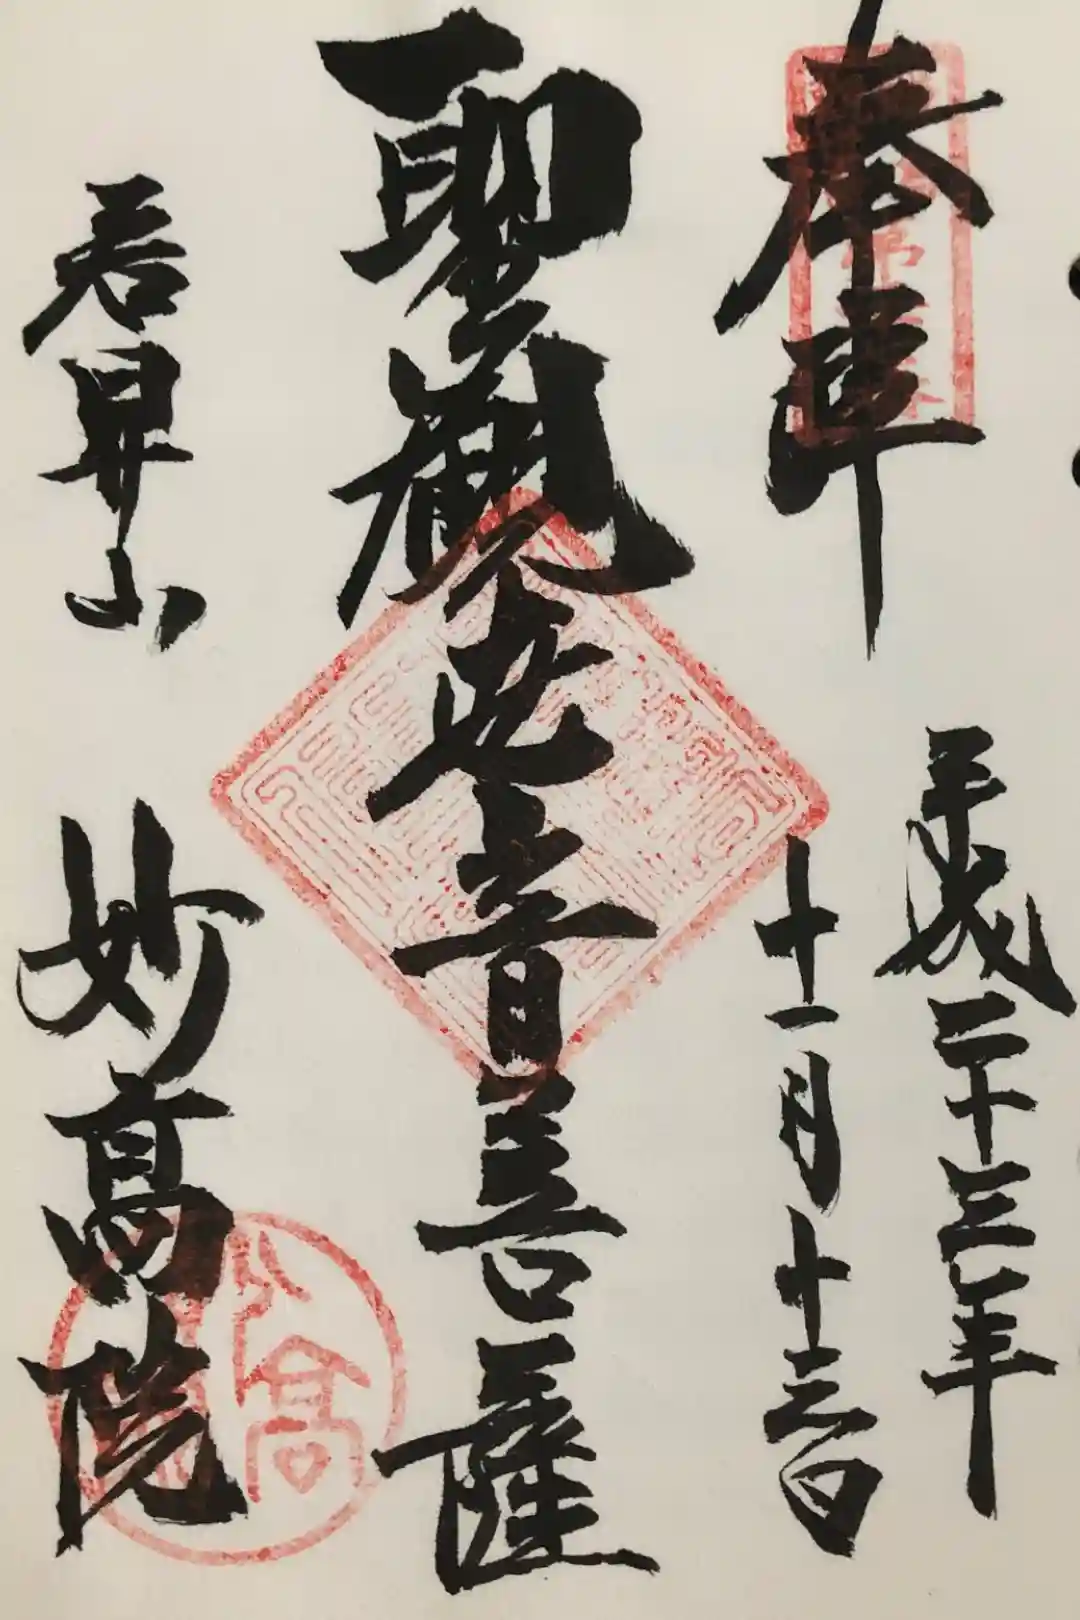 奉拝
平成二十三年
十一月十三日
聖観世音菩薩
山
妙高院